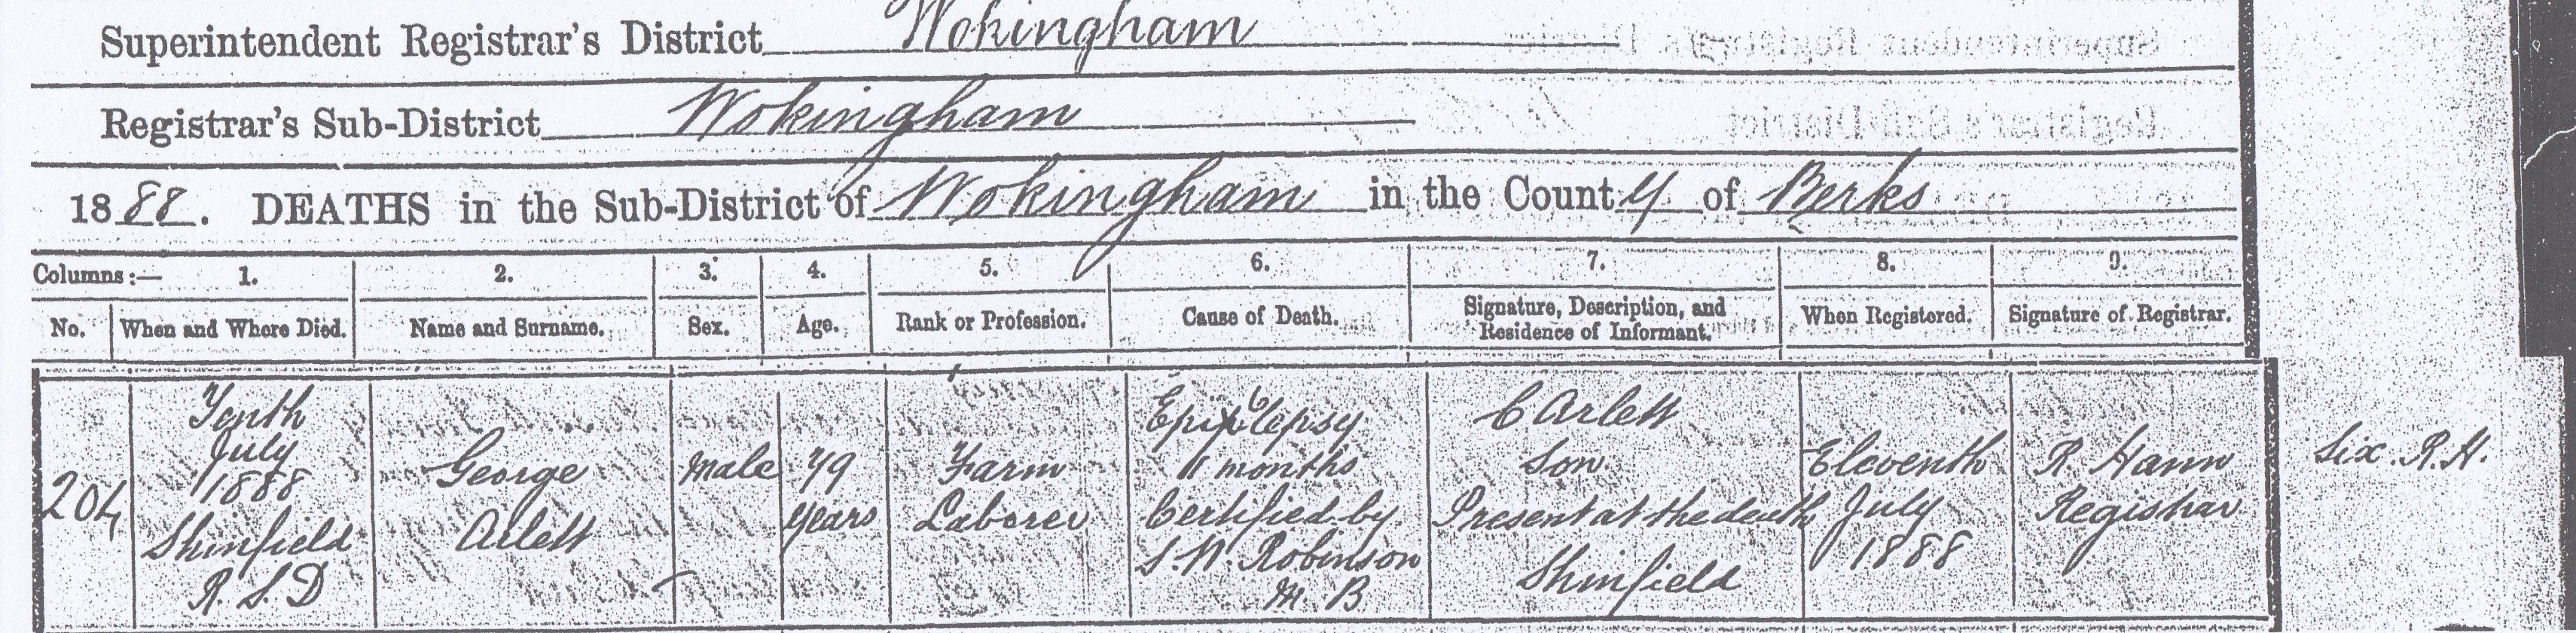 Superintendent Registrar's District Wokingham
Registrar's Sub-District Wokingham
1888. DEATHS in the Sub-District of Wokingham in the County of Berks
Columns:— 1. 2. 3. 4. 5. 6. 7. 8. 9.
No. When and Where Died. Name and Surname. Sex. Age. Rank or Profession. Cause of Death. Signature, Description, and Residence of Informant. When Registered. Signature of Registrar.
204
Tenth
July
1888
Shinfield
R. S. D
George
Arlett
Male
79
years
Farm
Laborer
Epilepsy
11 months
Certified by
S. W. Robinson
M. B
C Arlett
Son
Present at the death
Shinfield
Eleventh
July
1888
R. Hann
Registrar
Six. R. H.